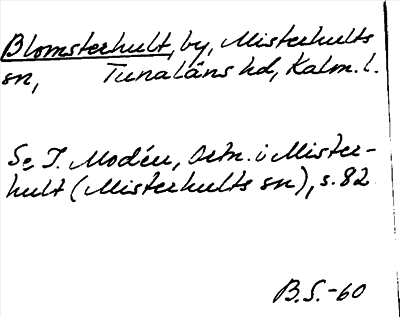 Blomsterhult, by, Misterhults
sn, Tunaläns hd, Kalm. l.
Se T. Modéen, Ortn. i Mister-
hult (Misterhults sn), s. 82
B.S.-60